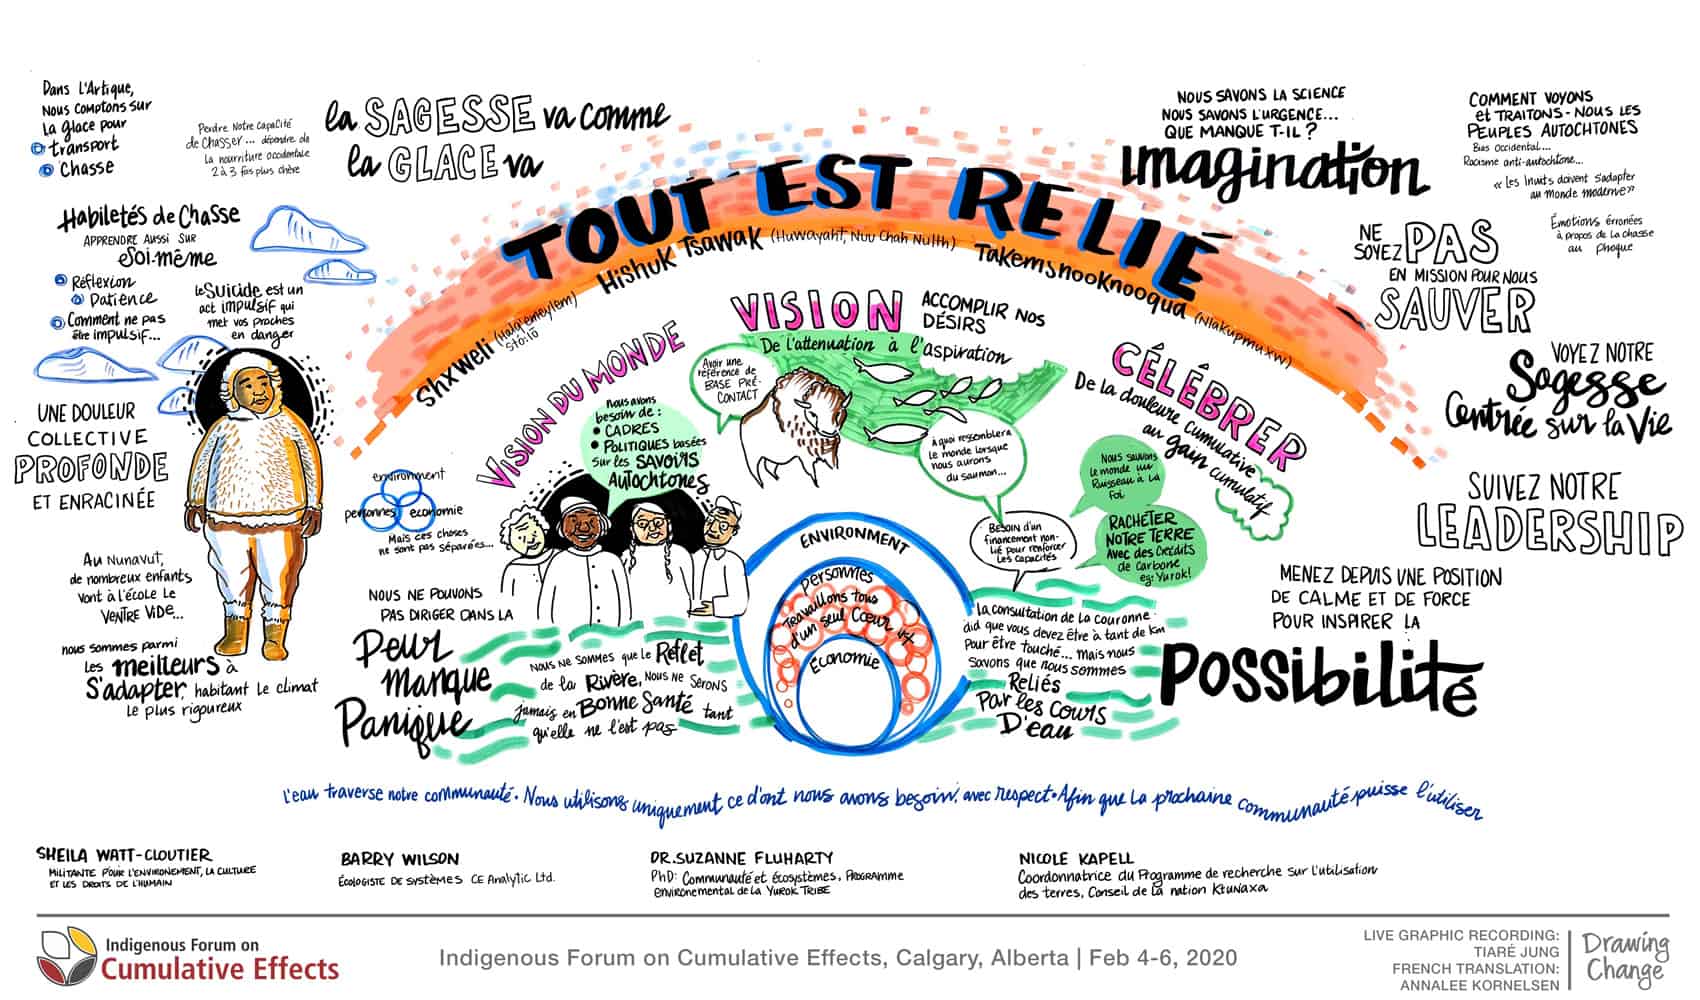 Dans l'Artique,
Nous comptons sur
La glace pour
transport
Chasse
Perdre notre capacité
de chasser... dépendre de
la nourriture occidentale
2 à 3 fois plus chère
la SAGESSE va comme
la GLACE va
Habiletés de Chasse
APPRENDRE AUSSI SUR
Soi-même
Réflexion
Patience
Comment ne pas
être impulsif...
Le Suicide est un
act impulsif qui
met vos proches
en danger
UNE DOULEUR
COLLECTIVE
PROFONDE
ET ENRACINÉE
Au Nunavut,
de nombreux enfants
vont à l'école le
VENTRE VIDE...
nous sommes parmi
Les meilleurs à
S'adapter, habitant le climat
Le plus rigoureux
TOUT EST RELIÉ
Shxweli (Halq'eméylem)
Stó:lō
Hishuk Tsawak (Huwayaht, Nuu Chah Nulth)
Takemsnooknooqua (Nlakupmuxw)
VISION DU MONDE
nous avons
besoin de :
CADRES
POLITIQUES basées
sur les SAVOIRS
AUTOCHTONES
environment
personnes
economie
Mais ces choses
ne sont pas séparées...
NOUS NE POUVONS
PAS DIRIGER DANS LA
Peur
Manque
Panique
VISION
ACCOMPLIR NOS
DÉSIRS
De l'attenuation à l'aspiration
Avoir une
référence de
BASE PRÉ-
CONTACT
À quoi ressemblera
le monde lorsque
nous aurons
du saumon...
CÉLÉBRER
De la douleure cumulative
au gain cumulatif
Nous sauvons
le monde un
Ruisseau à la
Foi
BESOIN d'un
financement non-
lié pour renforcer
les capacités
RACHETER
NOTRE TERRE
Avec des Crédits
de Carbone
eg: Yurok!
ENVIRONMENT
Personnes
Travaillons tous
d'un seul Cœur
Économie
NOUS NE SOMMES QUE LE Reflet
de la Rivère, Nous ne serons
jamais en Bonne Santé tant
qu'elle ne l'est pas
La consultation de la couronne
did que vous devez être à tant de km
Pour être touché... mais nous
Savons que nous sommes
Reliés
Par les cours
D'eau
NOUS SAVONS LA SCIENCE
NOUS SAVONS L'URGENCE...
QUE MANQUE T-IL?
Imagination
COMMENT VOYONS
et TRAITONS-NOUS LES
PEUPLES AUTOCHTONES
Bias occidental...
Racisme anti-autochtone...
« Les Inuits doivent s'adapter
au monde moderne»
Émotions érronées
à propos de la chasse
au phoque
NE
SOYEZ PAS
EN MISSION POUR NOUS
SAUVER
VOYEZ NOTRE
Sagesse
Centrée sur la Vie
SUIVEZ NOTRE
LEADERSHIP
MENEZ DEPUIS UNE POSITION
DE CALME ET DE FORCE
POUR INSPIRER LA
Possibilité
L'eau traverse notre communauté. Nous utilisons uniquement ce d'ont nous avons besoin, avec respect. Afin que la prochaine communauté puisse l'utiliser
SHEILA WATT-CLOUTIER
MILITANTE POUR L'ENVIRONEMENT, LA CULTURE
ET LES DROITS DE L'HUMAIN
BARRY WILSON
ÉCOLOGISTE DE SYSTÈMES CE Analytic Ltd.
DR. SUZANNE FLUHARTY
PhD: Communauté et écosystèmes, Programme
environemental de la YUROK TRIBE
NICOLE KAPELL
Coordonnatrice du Programme de recherche sur l'utilisation
des terres, Conseil de la nation Ktunaxa
Indigenous Forum on
Cumulative Effects
Indigenous Forum on Cumulative Effects, Calgary, Alberta | Feb 4-6, 2020
LIVE GRAPHIC RECORDING:
TIARÉ JUNG
FRENCH TRANSLATION:
ANNALEE KORNELSEN
Drawing
Change